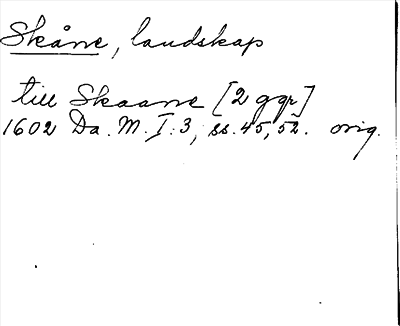 Skåne, landskap
till Skaane [2 ggr]
1602 Da. M. I:3, ss. 45, 52. orig.